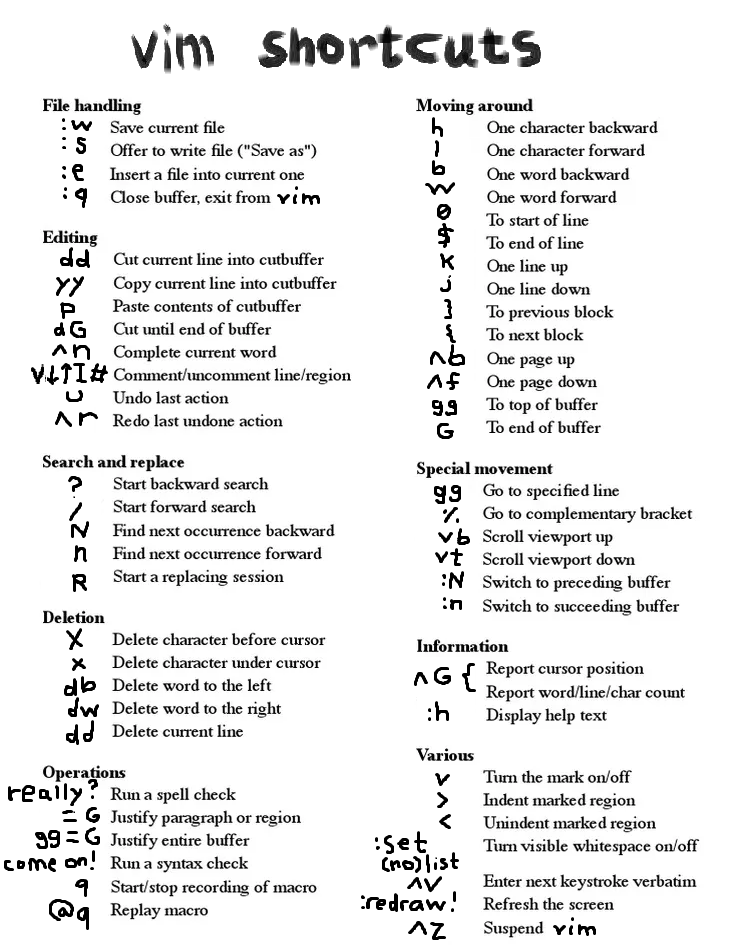 vim shortcuts
File handling
:w Save current file
:s Offer to write file ("Save as")
:e Insert a file into current one
:q Close buffer, exit from vim
Editing
dd Cut current line into cutbuffer
yy Copy current line into cutbuffer
p Paste contents of cutbuffer
dG Cut until end of buffer
^n Complete current word
V↓↑I# Comment/uncomment line/region
u Undo last action
^r Redo last undone action
Search and replace
? Start backward search
/ Start forward search
N Find next occurrence backward
n Find next occurrence forward
R Start a replacing session
Deletion
X Delete character before cursor
x Delete character under cursor
db Delete word to the left
dw Delete word to the right
dd Delete current line
Operations
really? Run a spell check
=G Justify paragraph or region
gg=G Justify entire buffer
come on! Run a syntax check
q Start/stop recording of macro
@q Replay macro
Moving around
h One character backward
l One character forward
b One word backward
w One word forward
0 To start of line
$ To end of line
K One line up
j One line down
} To previous block
{ To next block
^b One page up
^f One page down
gg To top of buffer
G To end of buffer
Special movement
gg Go to specified line
% Go to complementary bracket
vb Scroll viewport up
vt Scroll viewport down
:N Switch to preceding buffer
:n Switch to succeeding buffer
Information
^G { Report cursor position
Report word/line/char count
:h Display help text
Various
v Turn the mark on/off
> Indent marked region
< Unindent marked region
:set Turn visible whitespace on/off
(no)list
^V Enter next keystroke verbatim
:redraw! Refresh the screen
^Z Suspend vim